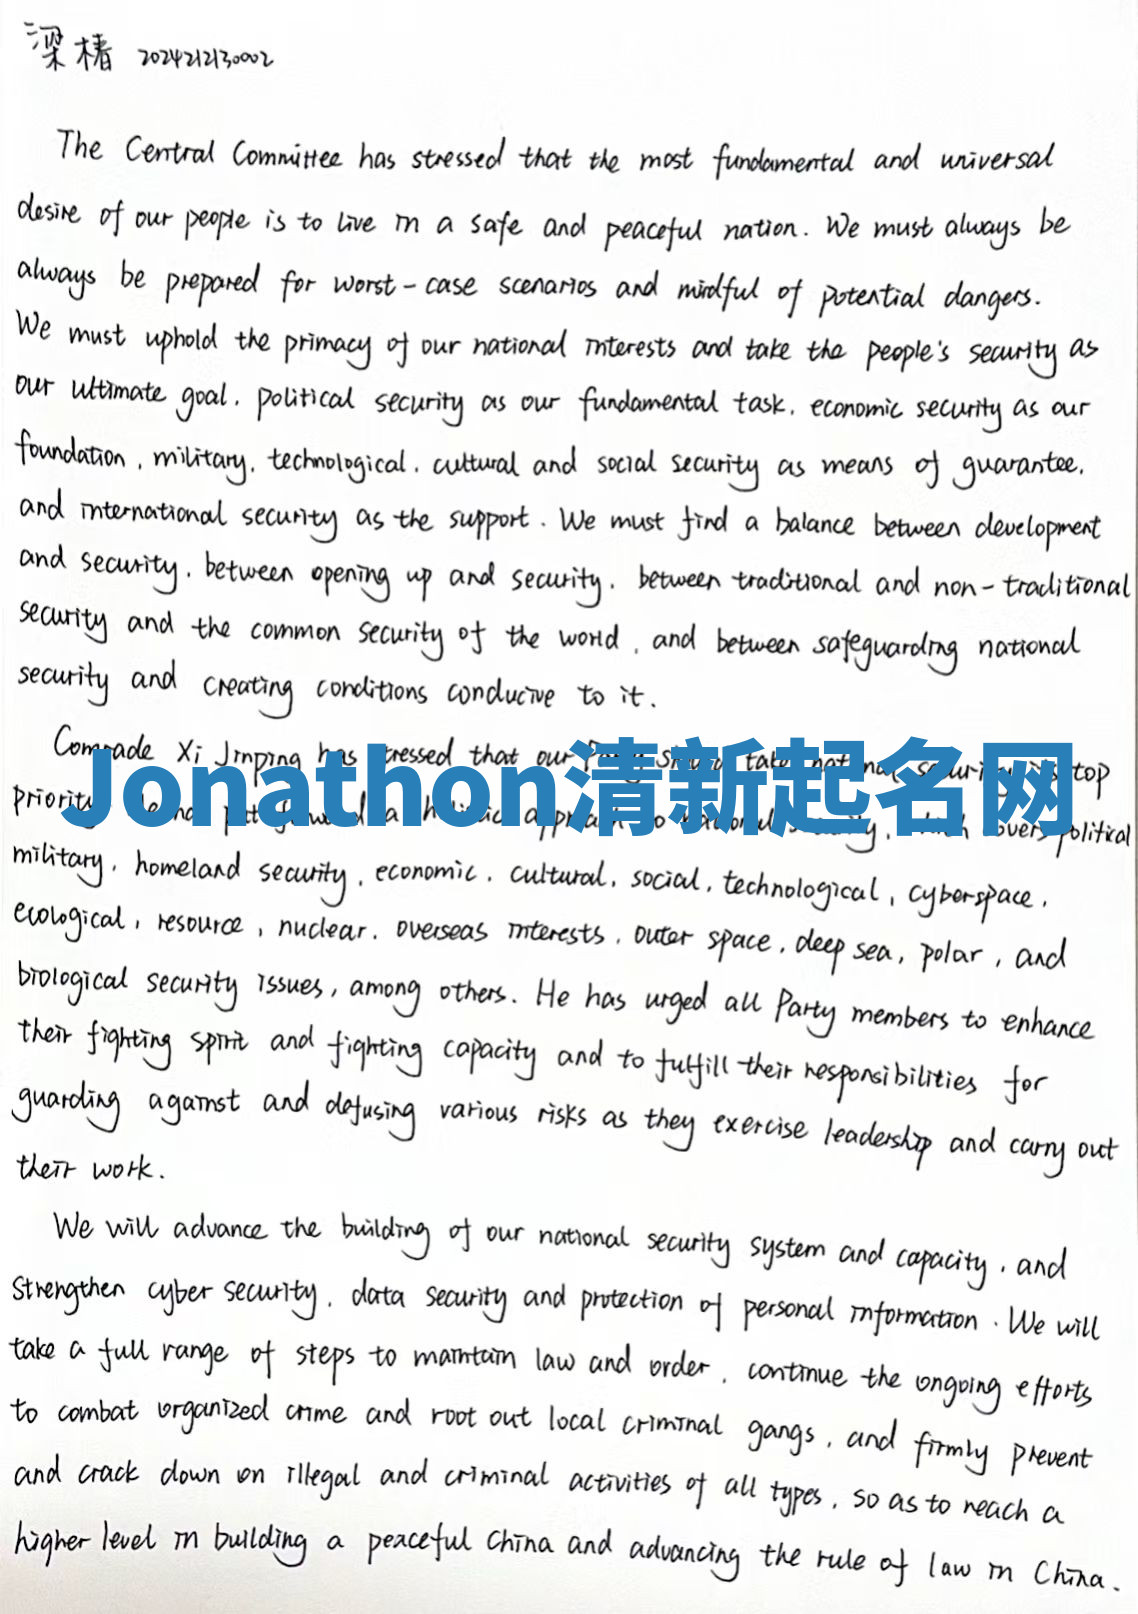 梁椿 2024212130002
The Central Committee has stressed that the most fundamental and universal
desire of our people is to live in a safe and peaceful nation. We must always be
always be prepared for worst-case scenarios and mindful of potential dangers.
We must uphold the primacy of our national interests and take the people's security as
our ultimate goal, political security as our fundamental task, economic security as our
foundation, military, technological, cultural and social security as means of guarantee,
and international security as the support. We must find a balance between development
and security, between opening up and security, between traditional and non-traditional
security and the common security of the world, and between safeguarding national
security and creating conditions conducive to it.
Comrade Xi Jinping has stressed that our Party should take national security its top
Jonathon清新起名网
priority and put forward a holistic approach to national security, which covers political
military, homeland security, economic, cultural, social, technological, cyberspace,
ecological, resource, nuclear, overseas interests, outer space, deep sea, polar, and
biological security issues, among others. He has urged all Party members to enhance
their fighting spirit and fighting capacity and to fulfill their responsibilities for
guarding against and defusing various risks as they exercise leadership and carry out
their work.
We will advance the building of our national security system and capacity, and
strengthen cyber security, data security and protection of personal information. We will
take a full range of steps to maintain law and order, continue the ongoing efforts
to combat organized crime and root out local criminal gangs, and firmly prevent
and crack down on illegal and criminal activities of all types, so as to reach a
higher level in building a peaceful China and advancing the rule of law in China.